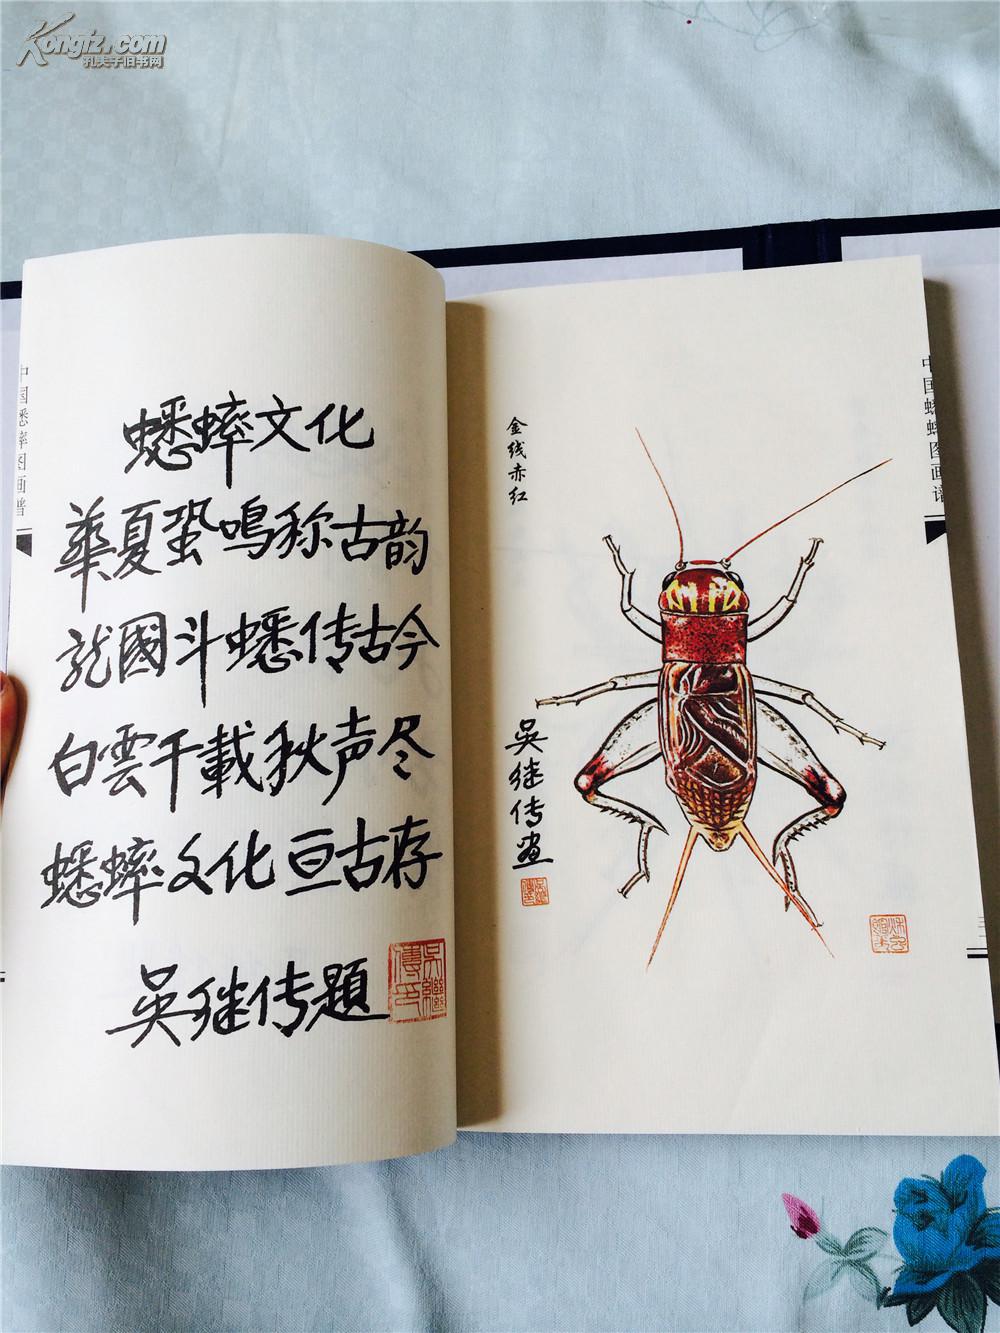 Kongfz.com
孔夫子旧书网
中国蟋蟀图画谱
蟋蟀文化
華夏蛩鳴称古韵
龙國斗蟋传古今
白雲千載秋声尽
蟋蟀文化亘古存
吴继传題
金线赤红
吴继传画
中国蟋蟀图画谱